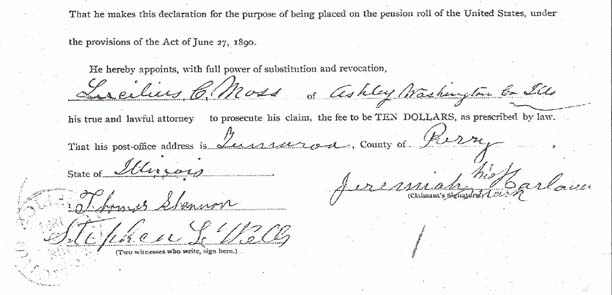 That he makes this declaration for the purpose of being placed on the pension roll of the United States, under
the provisions of the Act of June 27, 1890.
He hereby appoints, with full power of substitution and revocation,
Lucilius C. Moss of Ashley Washington Co Ills
his true and lawful attorney to prosecute his claim, the fee to be TEN DOLLARS, as prescribed by law.
That his post-office address is Tamaroa, County of Perry
State of Illinois
Jeremiah his mark
(Claimant's Signature)
Thomas Shannon
Stephen L Wells
(Two witnesses who write, sign here.)